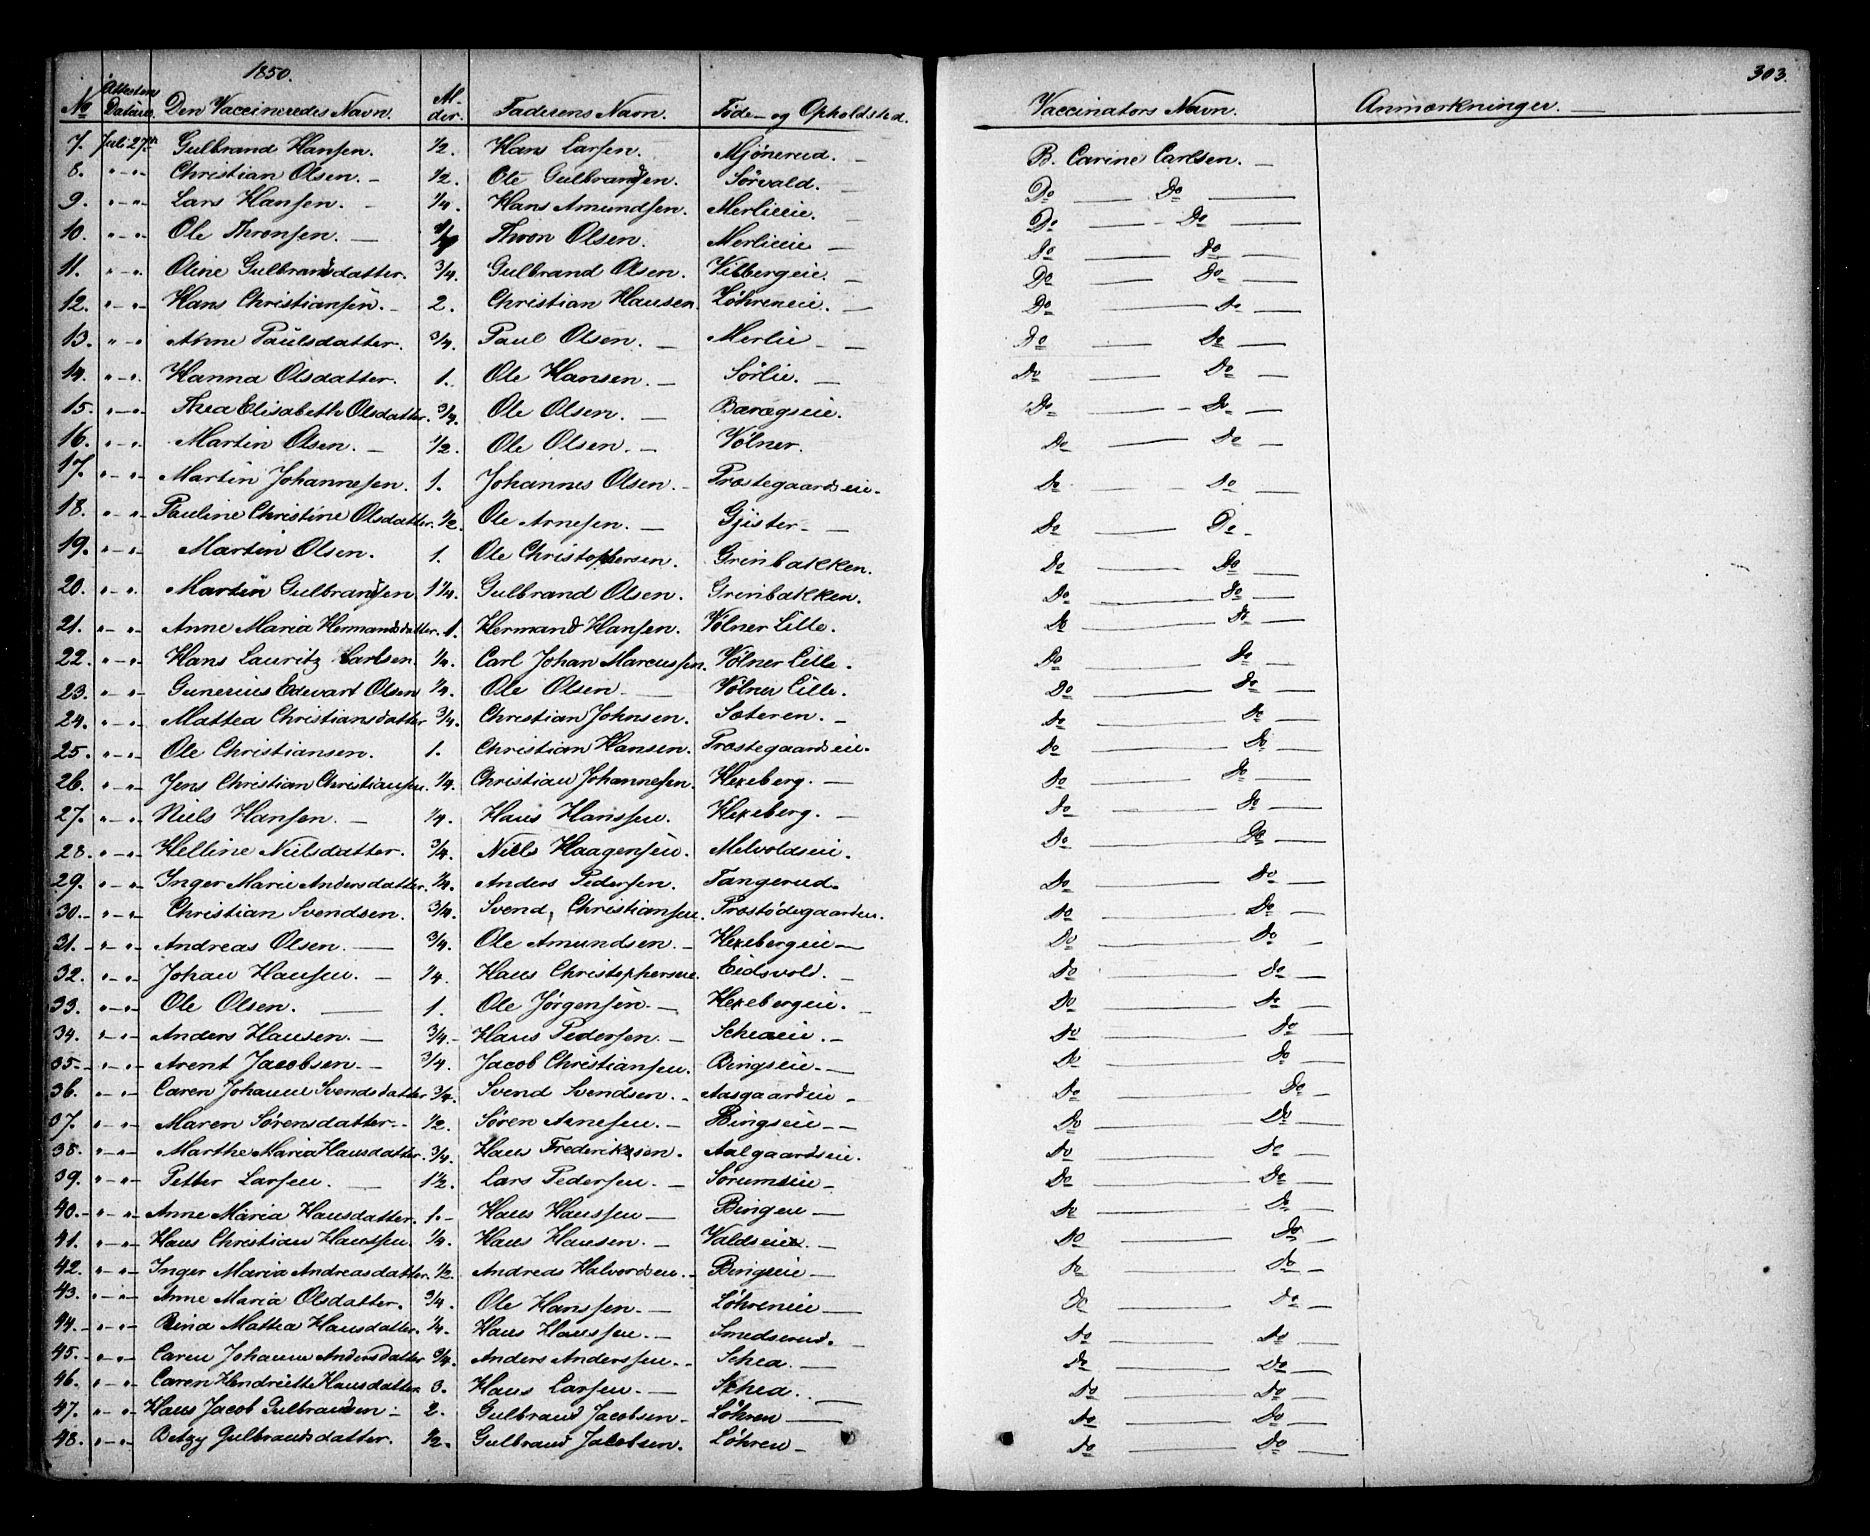 1850.
303.
No Attestens Datum. Den Vaccineredes Navn. Al-der. Faderens Navn. Føde- og Opholdsted. Vaccinators Navn. Anmærkninger.
7. Juli 27de Gulbrand Hansen. 1/2. Hans Larsen. Mjönerud. B. Carine Carlsen.
8. " - " Christian Olsen. 1/2. Ole Gulbrandsen. Sörvald. Do Do
9. " - " Lars Hansen. 1/4. Hans Amundsen. Merlieie. Do Do
10. " - " Ole Thronsen. Thron Olsen. Merlieie Do Do
11. " - " Oline Gulbrandsdatter. 3/4. Gulbrand Olsen. Vilbergeie. Do Do
12. " - " Hans Christiansen. 2. Christian Hansen. Löhreneie. Do Do
13. " - " Anne Paulsdatter. 3/4. Paul Olsen. Merlie Do Do
14. " - " Hanna Olsdatter. 1. Ole Hansen. Sörlie. Do Do
15. " - " Thea Elisabeth Olsdatter. 3/4. Ole Olsen. Baragseie. Do Do
16. " - " Martin Olsen. 1/2. Ole Olsen. Völner. Do Do
17. " - " Martin Johannesen. 1. Johannes Olsen. Præstegaardseie. Do Do
18. " - " Pauline Christine Olsdatter. 1/2. Ole Arnesen. Gjister Do Do
19. " - " Martin Olsen. 1. Ole Christophersen. Grinbakken. Do Do
20. " - " Martin Gulbrandsen 1 1/4. Gulbrand Olsen. Grinbakken. Do Do
21. " - " Anne Maria Hermandsdatter. 1. Hermand Hansen. Völner Lille. Do Do
22. " - " Hans Lauritz Carlsen. 1/4. Carl Johan Marcussen. Völner Lille. Do Do
23. " - " Gunerius Edevart Olsen 1/4. Ole Olsen Völner Lille. Do Do
24. " - " Mattea Christiansdatter 3/4. Christian Johnsen. Sæteren. Do Do
25. " - " Ole Christiansen. 1. Christian Hansen. Præstegaardseie. Do Do
26. " - " Jens Christian Christiansen. 1/4. Christian Johannesen. Hexeberg. Do Do
27. " - " Niels Hansen. 1/4. Hans Hanssen. Hexeberg. Do Do
28. " - " Helline Nielsdatter. 3/4. Niels Haagensen. Melvoldseie. Do Do
29. " - " Inger Marie Andersdatter. 1/4. Anders Pedersen. Tangerud. Do Do
30. " - " Christian Svendsen. 3/4. Svend Christiansen. Præstödegaarden. Do Do
31. " - " Andreas Olsen. 3/4. Ole Amundsen. Hexebergeie Do Do
32. " - " Johan Hansen. 1/4. Hans Christophersen. Eidsvold. Do Do
33. " - " Ole Olsen. 1. Ole Jörgensen. Hexebergeie. Do Do
34. " - " Anders Hansen. 3/4. Hans Pedersen. Scheaeie. Do Do
35. " - " Arent Jacobsen. 3/4. Jacob Christiansen. Bingseie. Do Do
36. " - " Caren Johanne Svendsdatter 3/4. Svend Svendsen. Aasgaardeie Do Do
37. " - " Maren Sörensdatter. 1/2. Sören Arnesen. Bingseie Do Do
38. " - " Marthe Maria Hansdatter. 3/4. Hans Frederiksen. Aalgaardseie. Do Do
39. " - " Petter Larsen. 1 1/2. Lars Pedersen. Sörumseie Do Do
40. " - " Anne Maria Hansdatter. 1. Hans Hanssen Bingen Do Do
41. " - " Hans Christian Hanssen. 1/4. Hans Hansen. Valdseie. Do Do
42. " - " Inger Maria Andreasdatter. 1/2. Andreas Halvordsen. Bingseie Do Do
43. " - " Anne Maria Olsdatter. 3/4. Ole Hanssen. Löhreneie Do Do
44. " - " Rina Mattea Hansdatter. 1/4. Hans Hanssen. Smedserud. Do Do
45. " - " Caren Johanne Andersdatter 3/4. Anders Anderssen. Schea. Do Do
46. " - " Caren Hendrikke Hansdatter. 3. Hans Larsen. Schea. Do Do
47. " - " Hans Jacob Gulbrandsen 2. Gulbrand Jacobsen. Löhren Do Do
48. " - " Betzy Gulbrandsdatter. 1/2. Gulbrand Jacobsen. Löhren Do Do